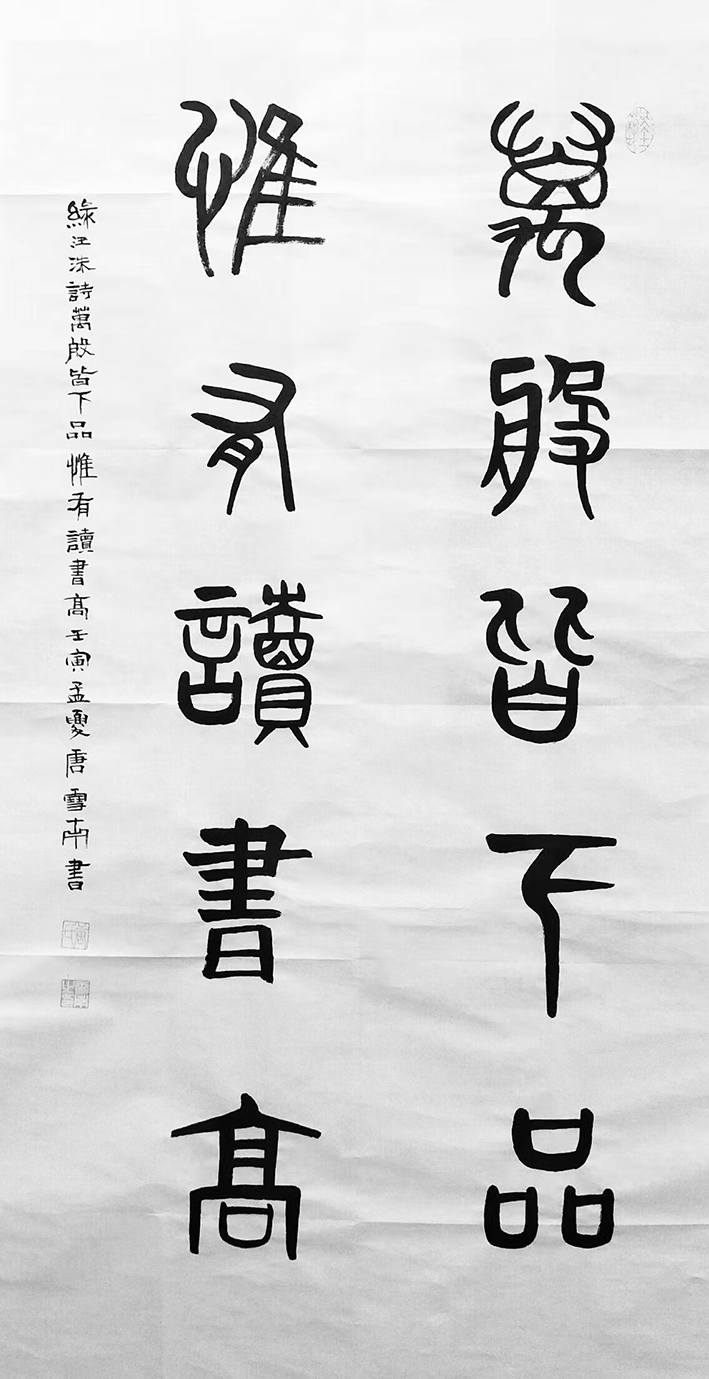 萬般皆下品
惟有讀書高
緣汪洙詩萬般皆下品惟有讀書高壬寅孟夏唐雪南書